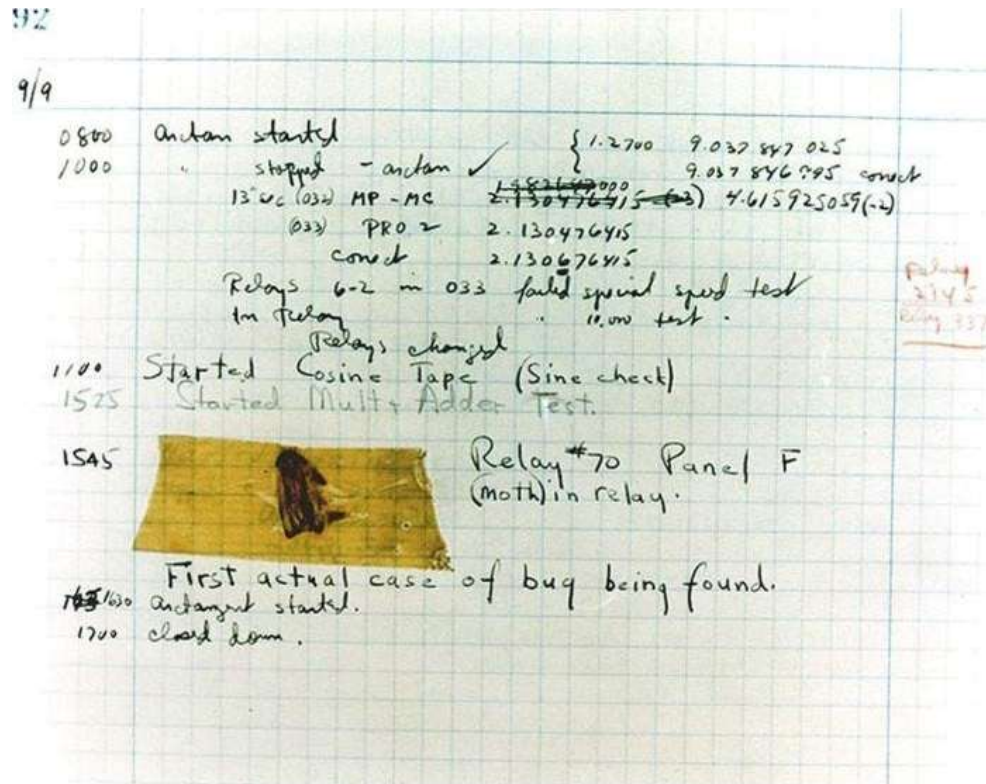 92
9/9
0800 Antan started { 1.2700 9.037 847 025
1000 " stopped - antan ✓ 9.037 846 995 correct
13"uc (032) MP - MC 2.130476415 (-3) 4.615925059(-2)
(033) PRO 2 2.130476415
correct 2.130676415
Relays 6-2 in 033 failed special speed test
In Relay " 10.000 test .
Relay
2145
Relay 337
Relays changed
1100 Started Cosine Tape (Sine check)
1525 Started Mult + Adder Test.
1545 Relay #70 Panel F
(moth) in relay.
First actual case of bug being found.
1630 antangent started.
1700 closed down.